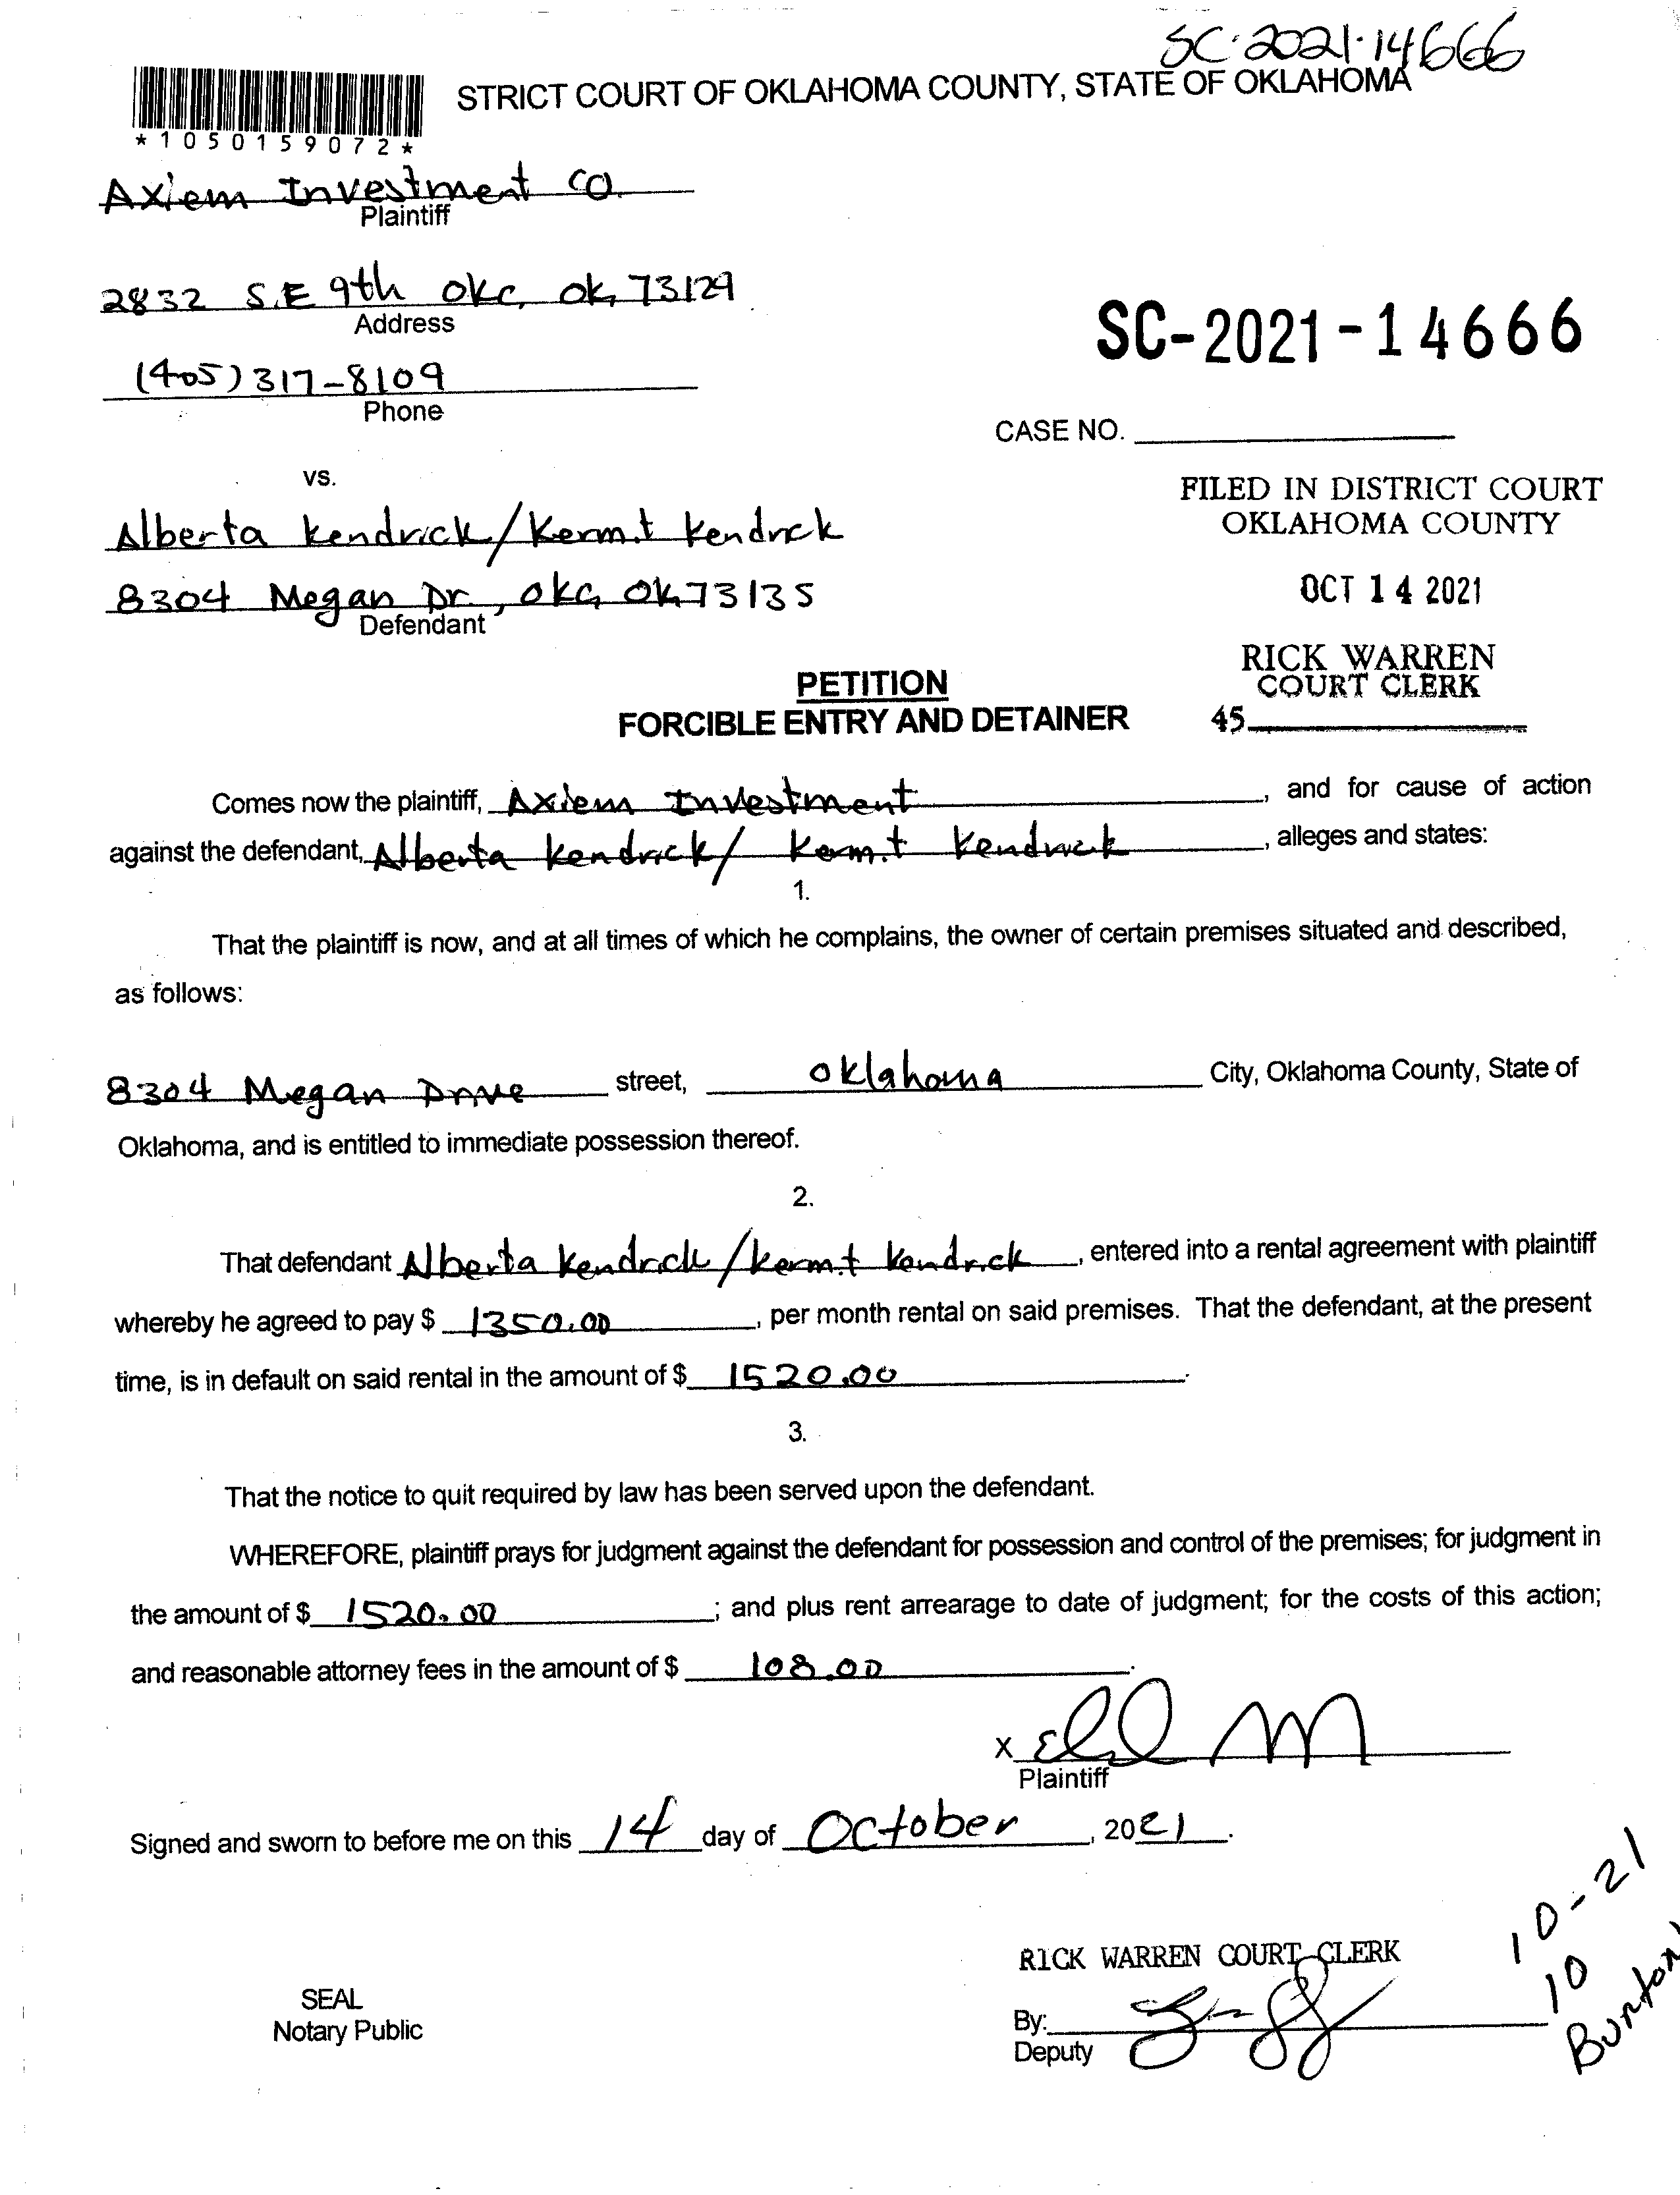 SC-2021-14666
STRICT COURT OF OKLAHOMA COUNTY, STATE OF OKLAHOMA
*1050159072*
Axiem Investment Co.
Plaintiff
2832 S.E 9th OKC, OK, 73129
Address
(405) 317-8109
Phone
SC-2021-14666
CASE NO.
vs.
FILED IN DISTRICT COURT
OKLAHOMA COUNTY
Alberta Kendrick/Kermit Kendrick
8304 Megan Dr., OKC, OK 73135
Defendant
OCT 14 2021
RICK WARREN
COURT CLERK
45
PETITION
FORCIBLE ENTRY AND DETAINER
Comes now the plaintiff, Axiem Investment, and for cause of action
against the defendant, Alberta Kendrick/ Kermit Kendrick, alleges and states:
1.
That the plaintiff is now, and at all times of which he complains, the owner of certain premises situated and described,
as follows:
8304 Megan Drive street, Oklahoma City, Oklahoma County, State of
Oklahoma, and is entitled to immediate possession thereof.
2.
That defendant Alberta Kendrick/Kermit Kendrick, entered into a rental agreement with plaintiff
whereby he agreed to pay $ 1350.00, per month rental on said premises. That the defendant, at the present
time, is in default on said rental in the amount of $ 1520.00.
3.
That the notice to quit required by law has been served upon the defendant.
WHEREFORE, plaintiff prays for judgment against the defendant for possession and control of the premises; for judgment in
the amount of $ 1520.00; and plus rent arrearage to date of judgment; for the costs of this action;
and reasonable attorney fees in the amount of $ 108.00.
X
Plaintiff
Signed and sworn to before me on this 14 day of October, 2021.
10-21
10
Burton
RICK WARREN COURT CLERK
SEAL
Notary Public
By:
Deputy